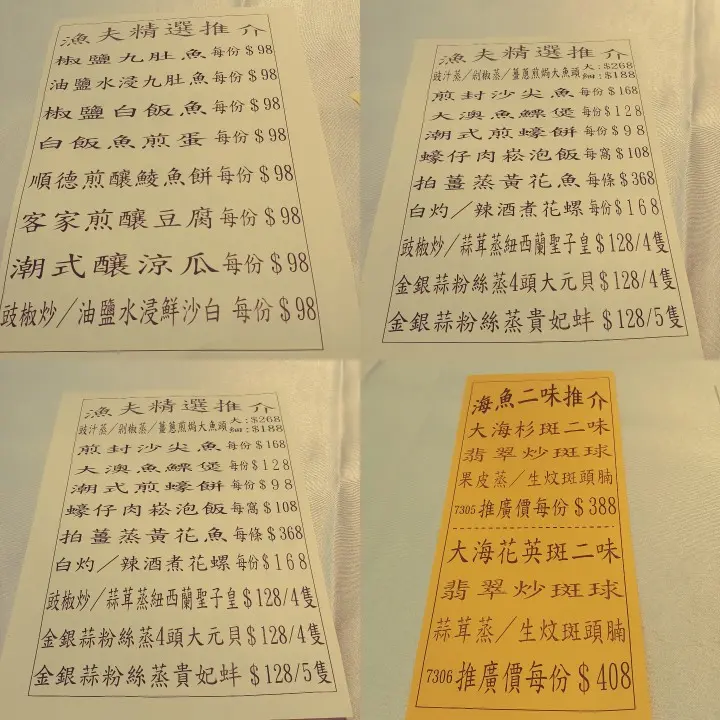 漁夫精選推介
椒鹽九肚魚每份$98
油鹽水浸九肚魚每份$98
椒鹽白飯魚每份$98
白飯魚煎蛋每份$98
順德煎釀鯪魚餅每份$98
客家煎釀豆腐每份$98
潮式釀涼瓜每份$98
豉椒炒/油鹽水浸鮮沙白 每份$98
漁夫精選推介
豉汁蒸/剁椒蒸/薑蔥煎焗大魚頭 大:$268 細:$188
煎封沙尖魚每份$168
大澳魚鰾煲每份$128
潮式煎蠔餅每份$98
蠔仔肉崧泡飯每窩$108
拍薑蒸黃花魚每條$368
白灼/辣酒煮花螺每份$168
豉椒炒/蒜茸蒸紐西蘭聖子皇$128/4隻
金銀蒜粉絲蒸4頭大元貝$128/4隻
金銀蒜粉絲蒸貴妃蚌$128/5隻
漁夫精選推介
豉汁蒸/剁椒蒸/薑蔥煎焗大魚頭 大:$268 細:$188
煎封沙尖魚每份$168
大澳魚鰾煲每份$128
潮式煎蠔餅每份$98
蠔仔肉崧泡飯每窩$108
拍薑蒸黃花魚每條$368
白灼/辣酒煮花螺每份$168
豉椒炒/蒜茸蒸紐西蘭聖子皇$128/4隻
金銀蒜粉絲蒸4頭大元貝$128/4隻
金銀蒜粉絲蒸貴妃蚌$128/5隻
海魚二味推介
大海杉斑二味
翡翠炒斑球
果皮蒸/生炆斑頭腩
7305推廣價每份$388
大海花英斑二味
翡翠炒斑球
蒜茸蒸/生炆斑頭腩
7306推廣價每份$408